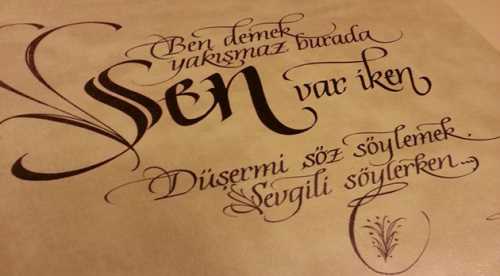 Ben demek
yakışmaz burada
Sen var iken
Düşermi söz söylemek.
Sevgili söylerken...